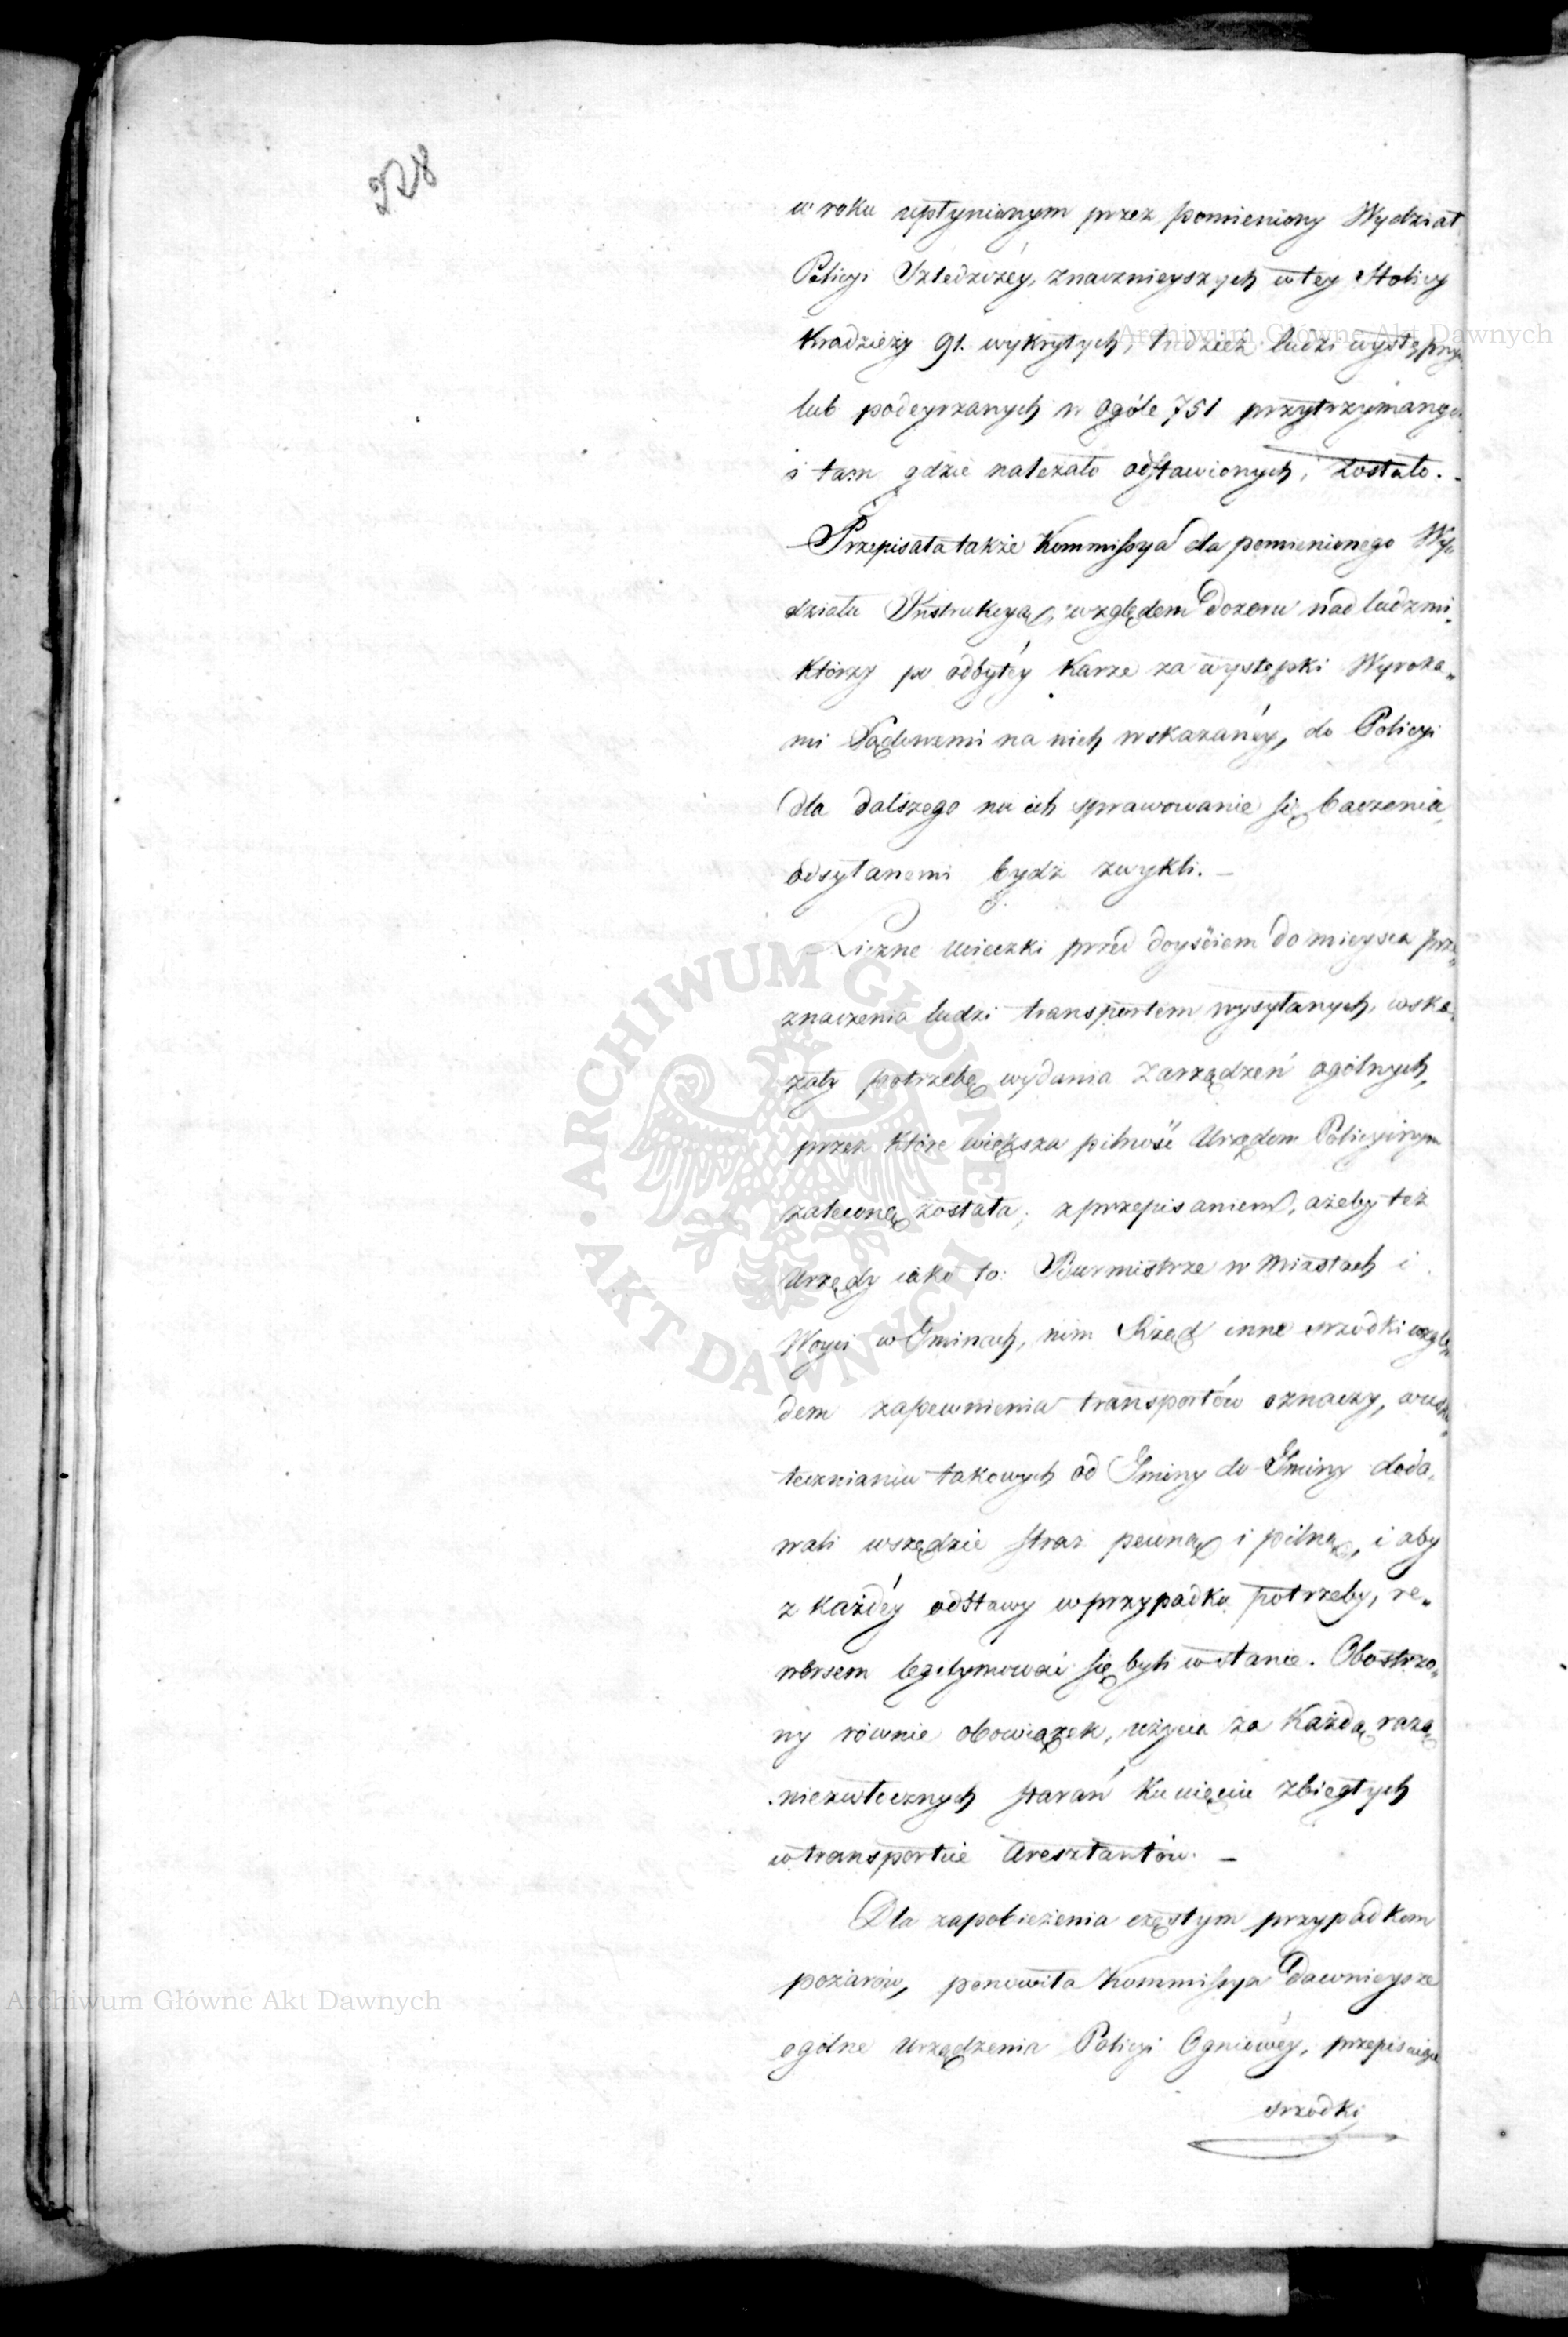 328
w roku upłynionym przez pomieniony Wydział
Policyi Szledzczéy, znacznieyszych w tey Stolicy
Kradzieży 91. wykrytych, tudzież ludzi występnych
lub podeyrzanych w ogóle 751 przytrzymanych
i tam gdzie należało odstawionych, zostało. –
Przepisała także Kommissya dla pomienionego Wy„
działu Instrukcyą, względem Dozoru nad ludzmi„
którzy po odbytéy Karze za występki Wyroka„
mi Sądowemi na nich wskazanéy, do Policyi
dla dalszego na ich sprawowanie się baczenia,
odsyłanemi bydź zwykli. –
Liczne ucieczki przed doyściem do mieysca prze„
znaczenia ludzi transportem wysyłanych, wska„
zały potrzebę wydania Zarządzeń ogólnych,
przez które większa pilność Urzędom Policyinym
zaleconą została; z przepisaniem, ażeby też
Urzędy iako to: Burmistrze w Miastach i
Woyci w Gminach, nim Rząd inne srzodki wzglę„
dem zapewnienia transportów oznaczy, w usku„
tecznianiu takowych od Gminy do Gminy doda„
wali wszędzie straż pewną i pilną, i aby
z każdéy odstawy w przypadku potrzeby, re„
wersem legitymować się byli w stanie. Obostrzo„
ny równie obowiązek, użycia za Każdą razą
niezwłocznych starań Ku uięciu zbiegłych
w transportcie Aresztantów. –
Dla zapobieżenia częstym przypadkom
pożarów, ponowiła Kommissya Dawnieysze
ogólne Urządzenia Policyi Ogniowéy, przepisuiąc
srzodki
Archiwum Główne Akt Dawnych
Archiwum Główne Akt Dawnych
ARCHIWUM GŁÓWNE
AKT DAWNYCH